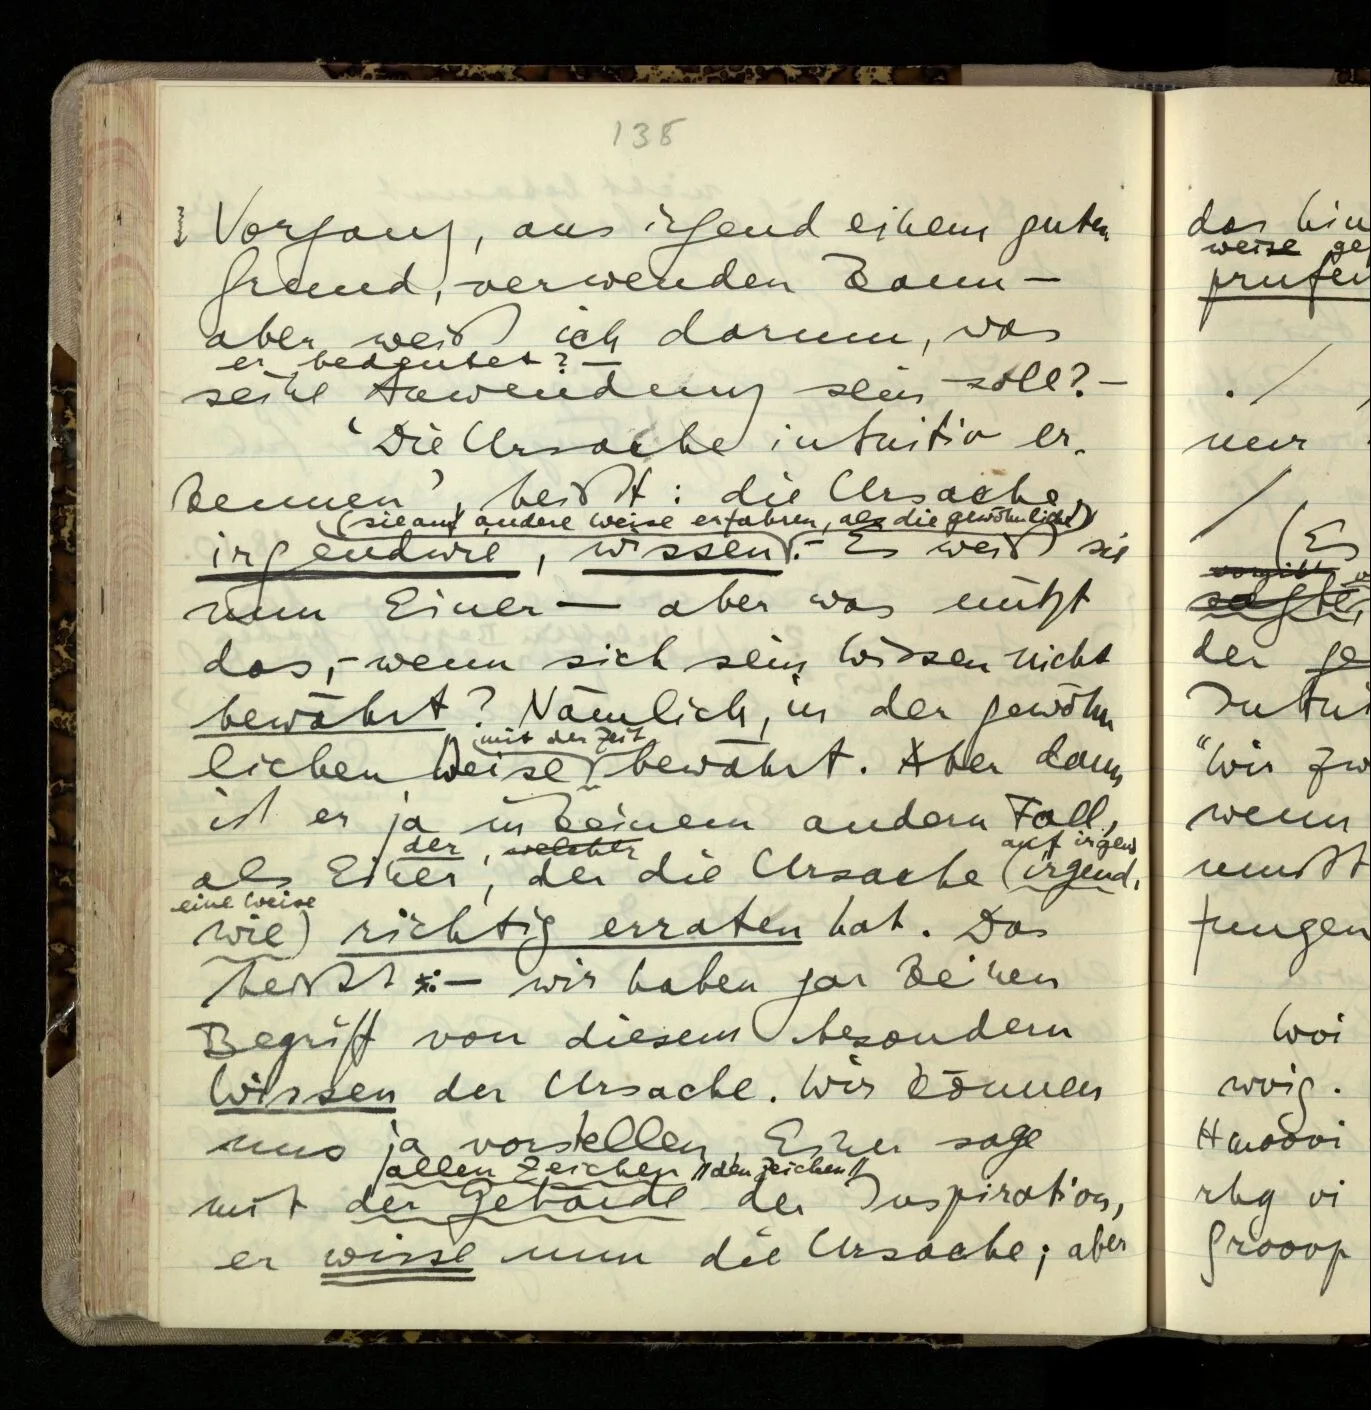 138
Vorgang, aus irgend einem guten
Grund, verwenden kann –
aber weiß ich darum, was
er bedeutet? –
seine Anwendung sein soll? –
'Die Ursache intuitiv er-
kennen', heißt: die Ursache,
(sie auf andere Weise erfahren, als die gewöhnliche)
irgendwie, wissen. – Es weiß sie
nun Einer – aber was nützt
das, – wenn sich sein Wissen nicht
bewährt? Nämlich, in der gewöhn
mit der Zeit
lichen Weise bewährt. Aber dann
ist er ja in keinem andern Fall,
der, welcher auf irgend
als Einer, der die Ursache (irgend-
eine Weise
wie) richtig erraten hat. Das
heißt: – wir haben gar keinen
Begriff von diesem besondern
Wissen der Ursache. Wir können
uns ja vorstellen, Einer sage
allen Zeichen // den Zeichen //
mit der Gebärde der Inspiration,
er wisse nun die Ursache; aber
das hin
weise ge
prüfen
nur
(Es
der ge
Intui
"Wir zw
wenn
mußt
fungen
woi
woig.
rhg vi
Grooop